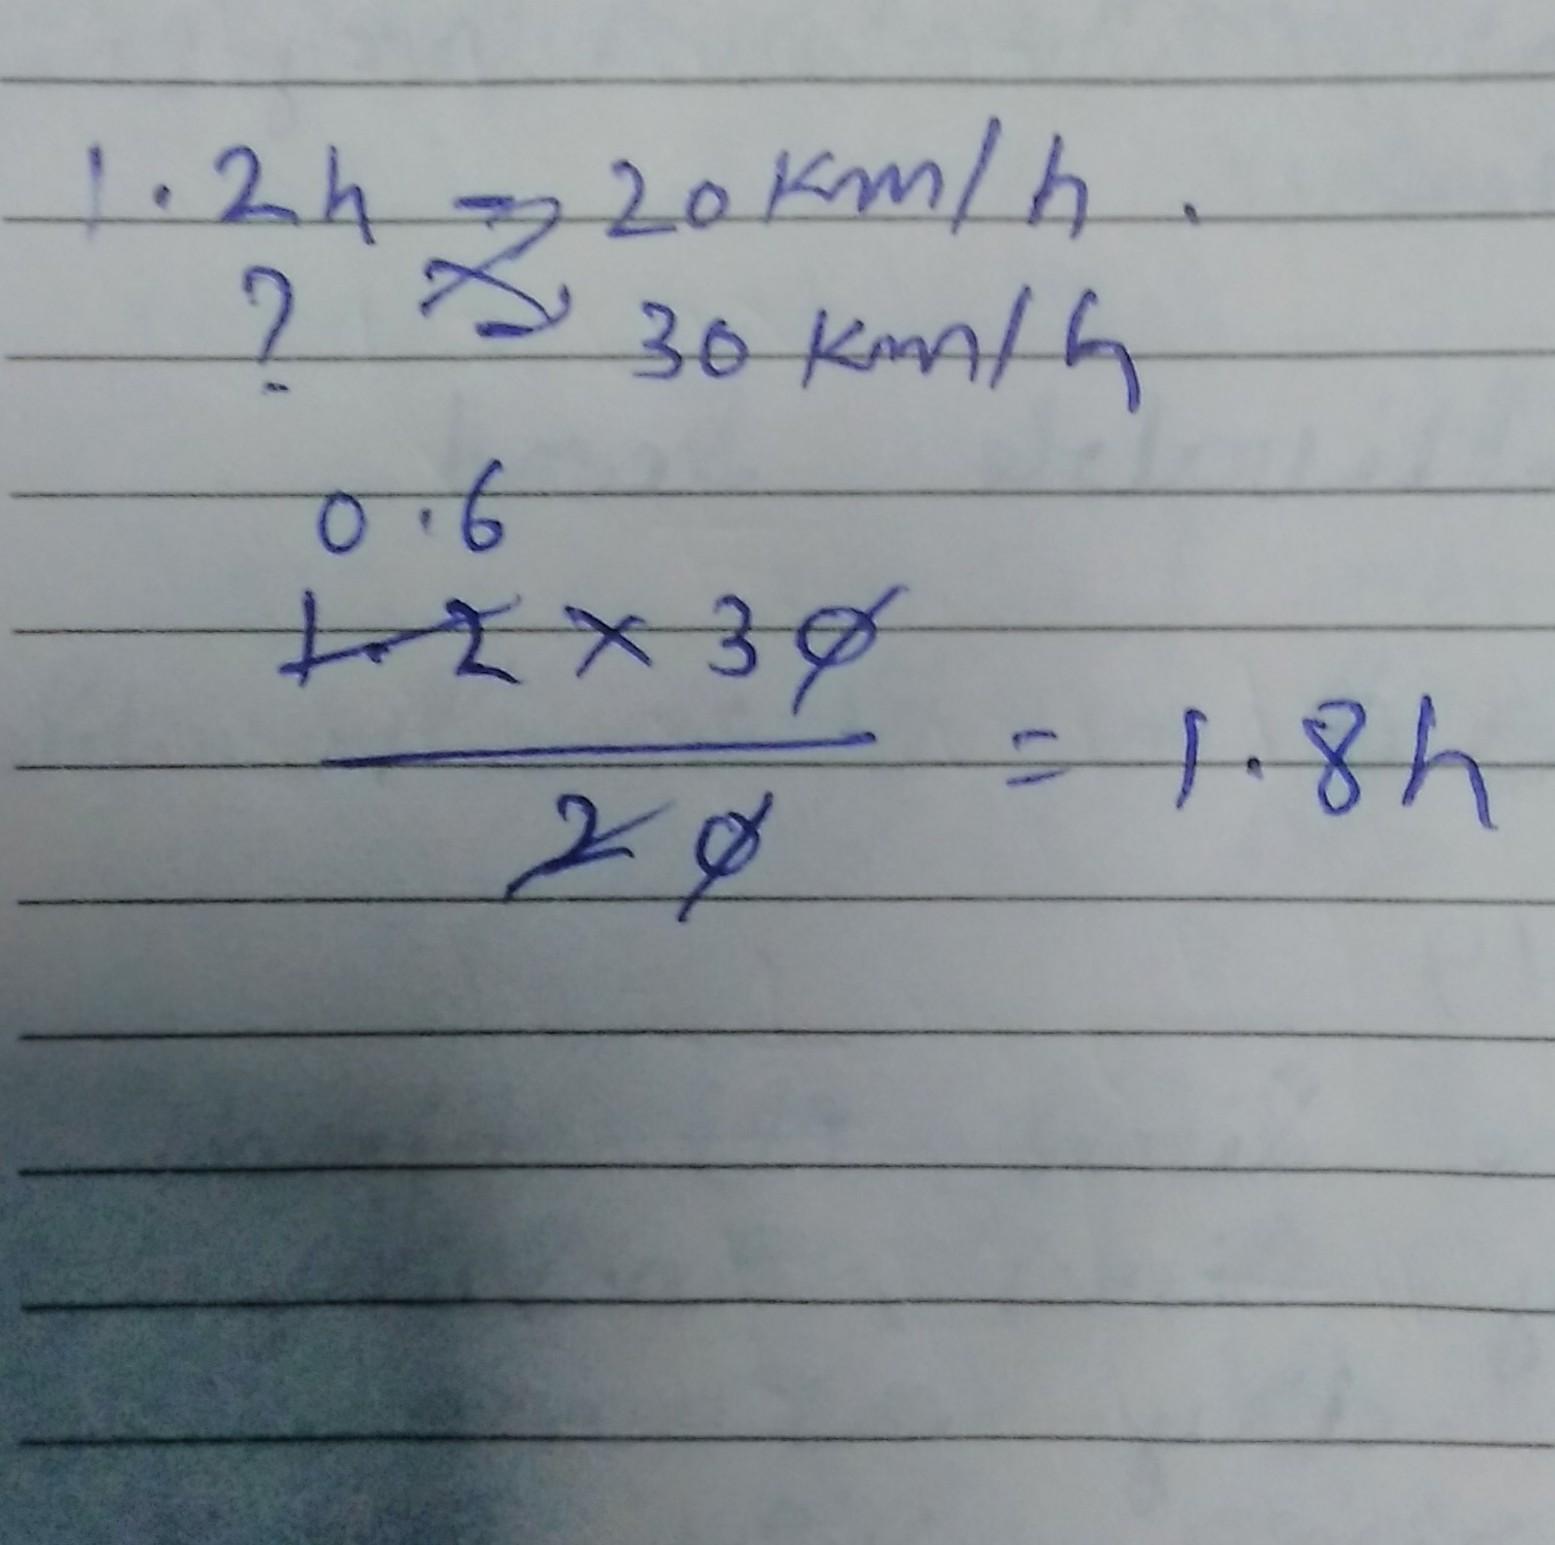 1.2h → 20 km/h.
? 30 km/h
0.6
1.2 × 30
20
= 1.8h